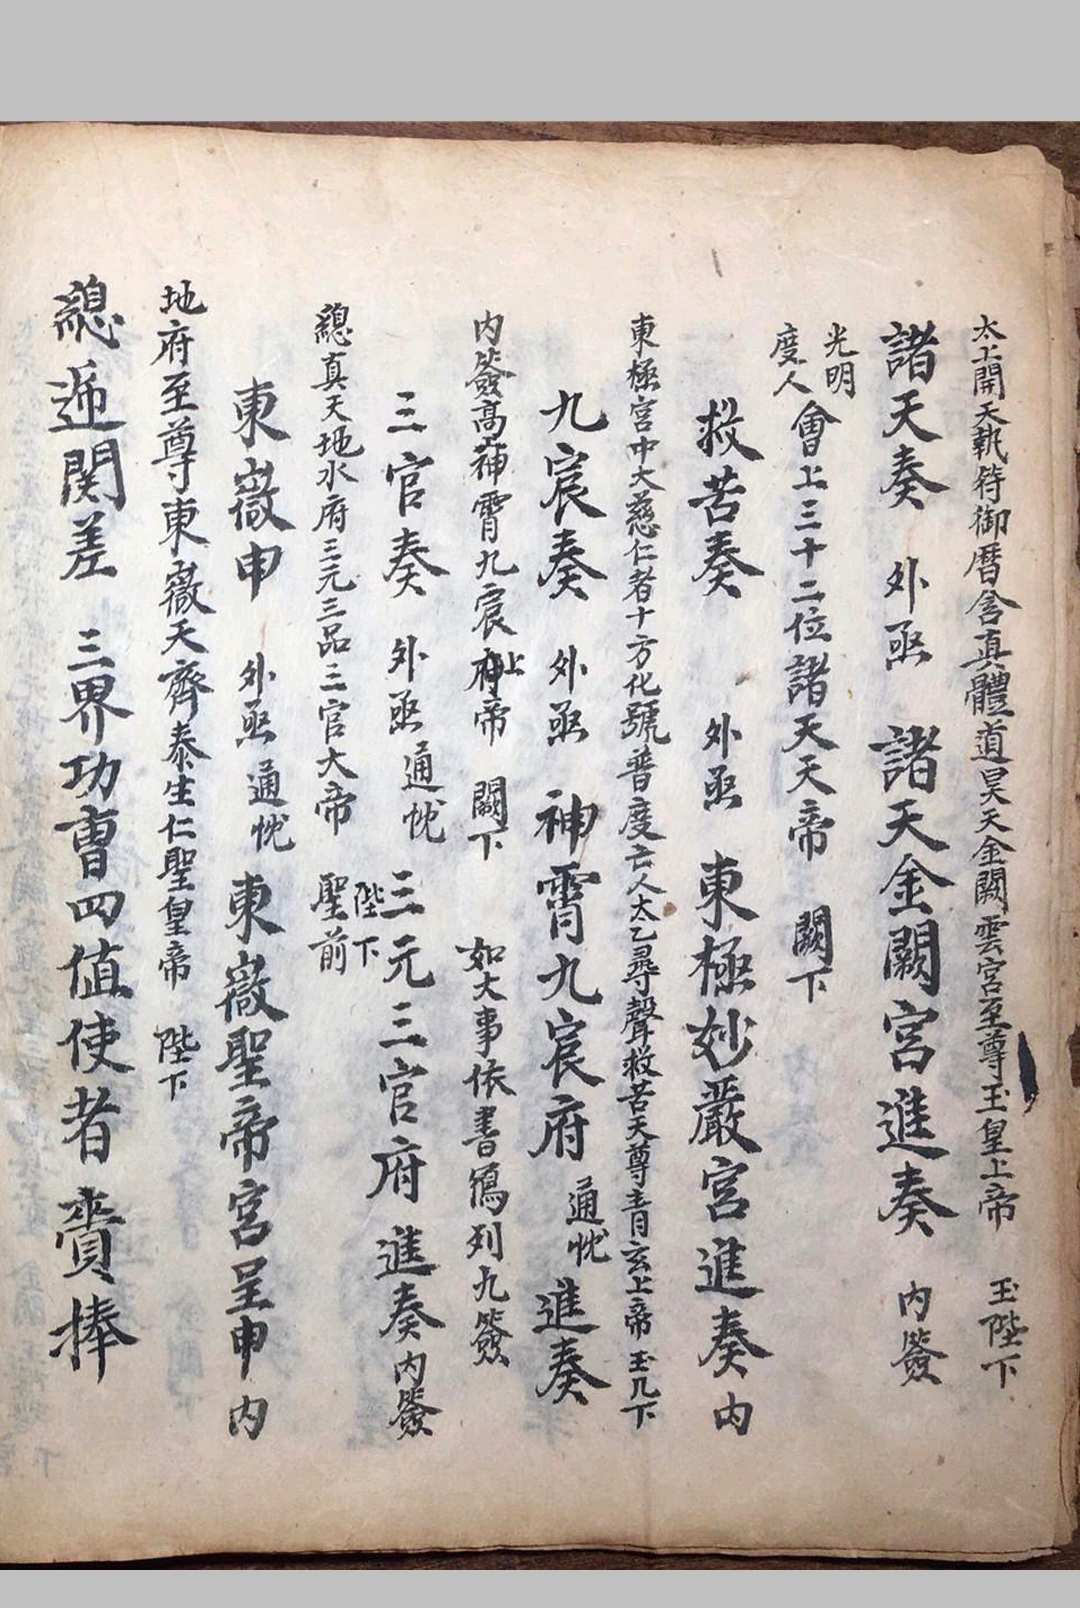 太上開天執符御曆含真體道昊天金闕雲宮至尊玉皇上帝 玉陛下
諸天奏 外亟 諸天金闕宮進奏 內簽
光明
度人
會上三十二位諸天天帝 闕下
救苦奏 外亟 東極妙嚴宮進奏內
東極宮中大慈仁者十方化號普度亡人太乙尋聲救苦天尊青玄上帝 玉几下
九宸奏 外亟 神霄九宸府 通忱 進奏
內簽高上神霄九宸帝 闕下 如大事依書寫列九簽
三官奏 外亟 通忱 三元三官府進奏內簽
總真天地水府三元三品三官大帝 陛下 聖前
東嶽申 外亟 通忱 東嶽聖帝宮呈申內
地府至尊東嶽天齊泰生仁聖皇帝 陛下
總遞関差 三界功曹四值使者 賫捧